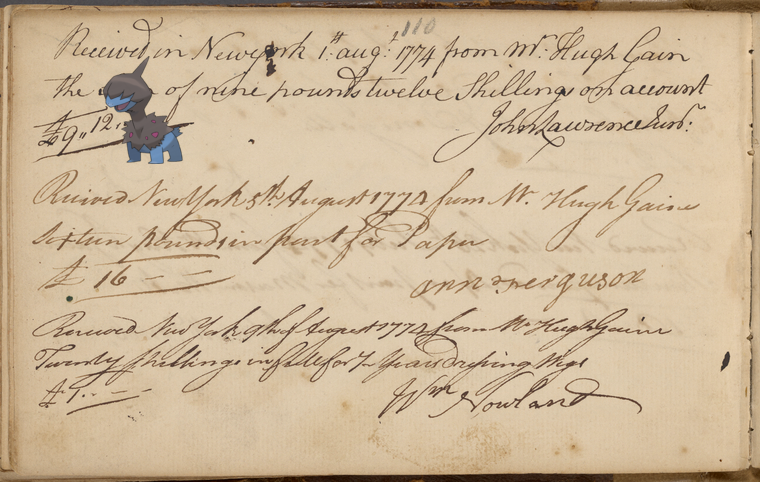 110
Received in Newyork 1st. augt. 1774 from Mr. Hugh Gain
the of nine pounds twelve Shillings on account
£9,, 12,,
John Lawrence Junr.
Received New York 5th. August 1774 from Mr. Hugh Gaine
sixteen pounds in part for Paper
£ 16 — —
ann Ferguson
Received New York 9th of August 1774 from Mr Hugh Gaine
Twenty shillings in full for Year Dressing Wigs
£ 1.. — —
Wm Nowland